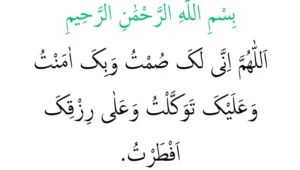 بِسْمِ اللهِ الرَّحْمٰنِ الرَّحِيمِ
اَللّٰهُمَّ اِنَّی لَکَ صُمْتُ وَبِکَ اٰمَنْتُ
وَعَلَيْکَ تَوَکَّلْتُ وَعَلٰی رِزْقِکَ
اَفْطَرْتُ.